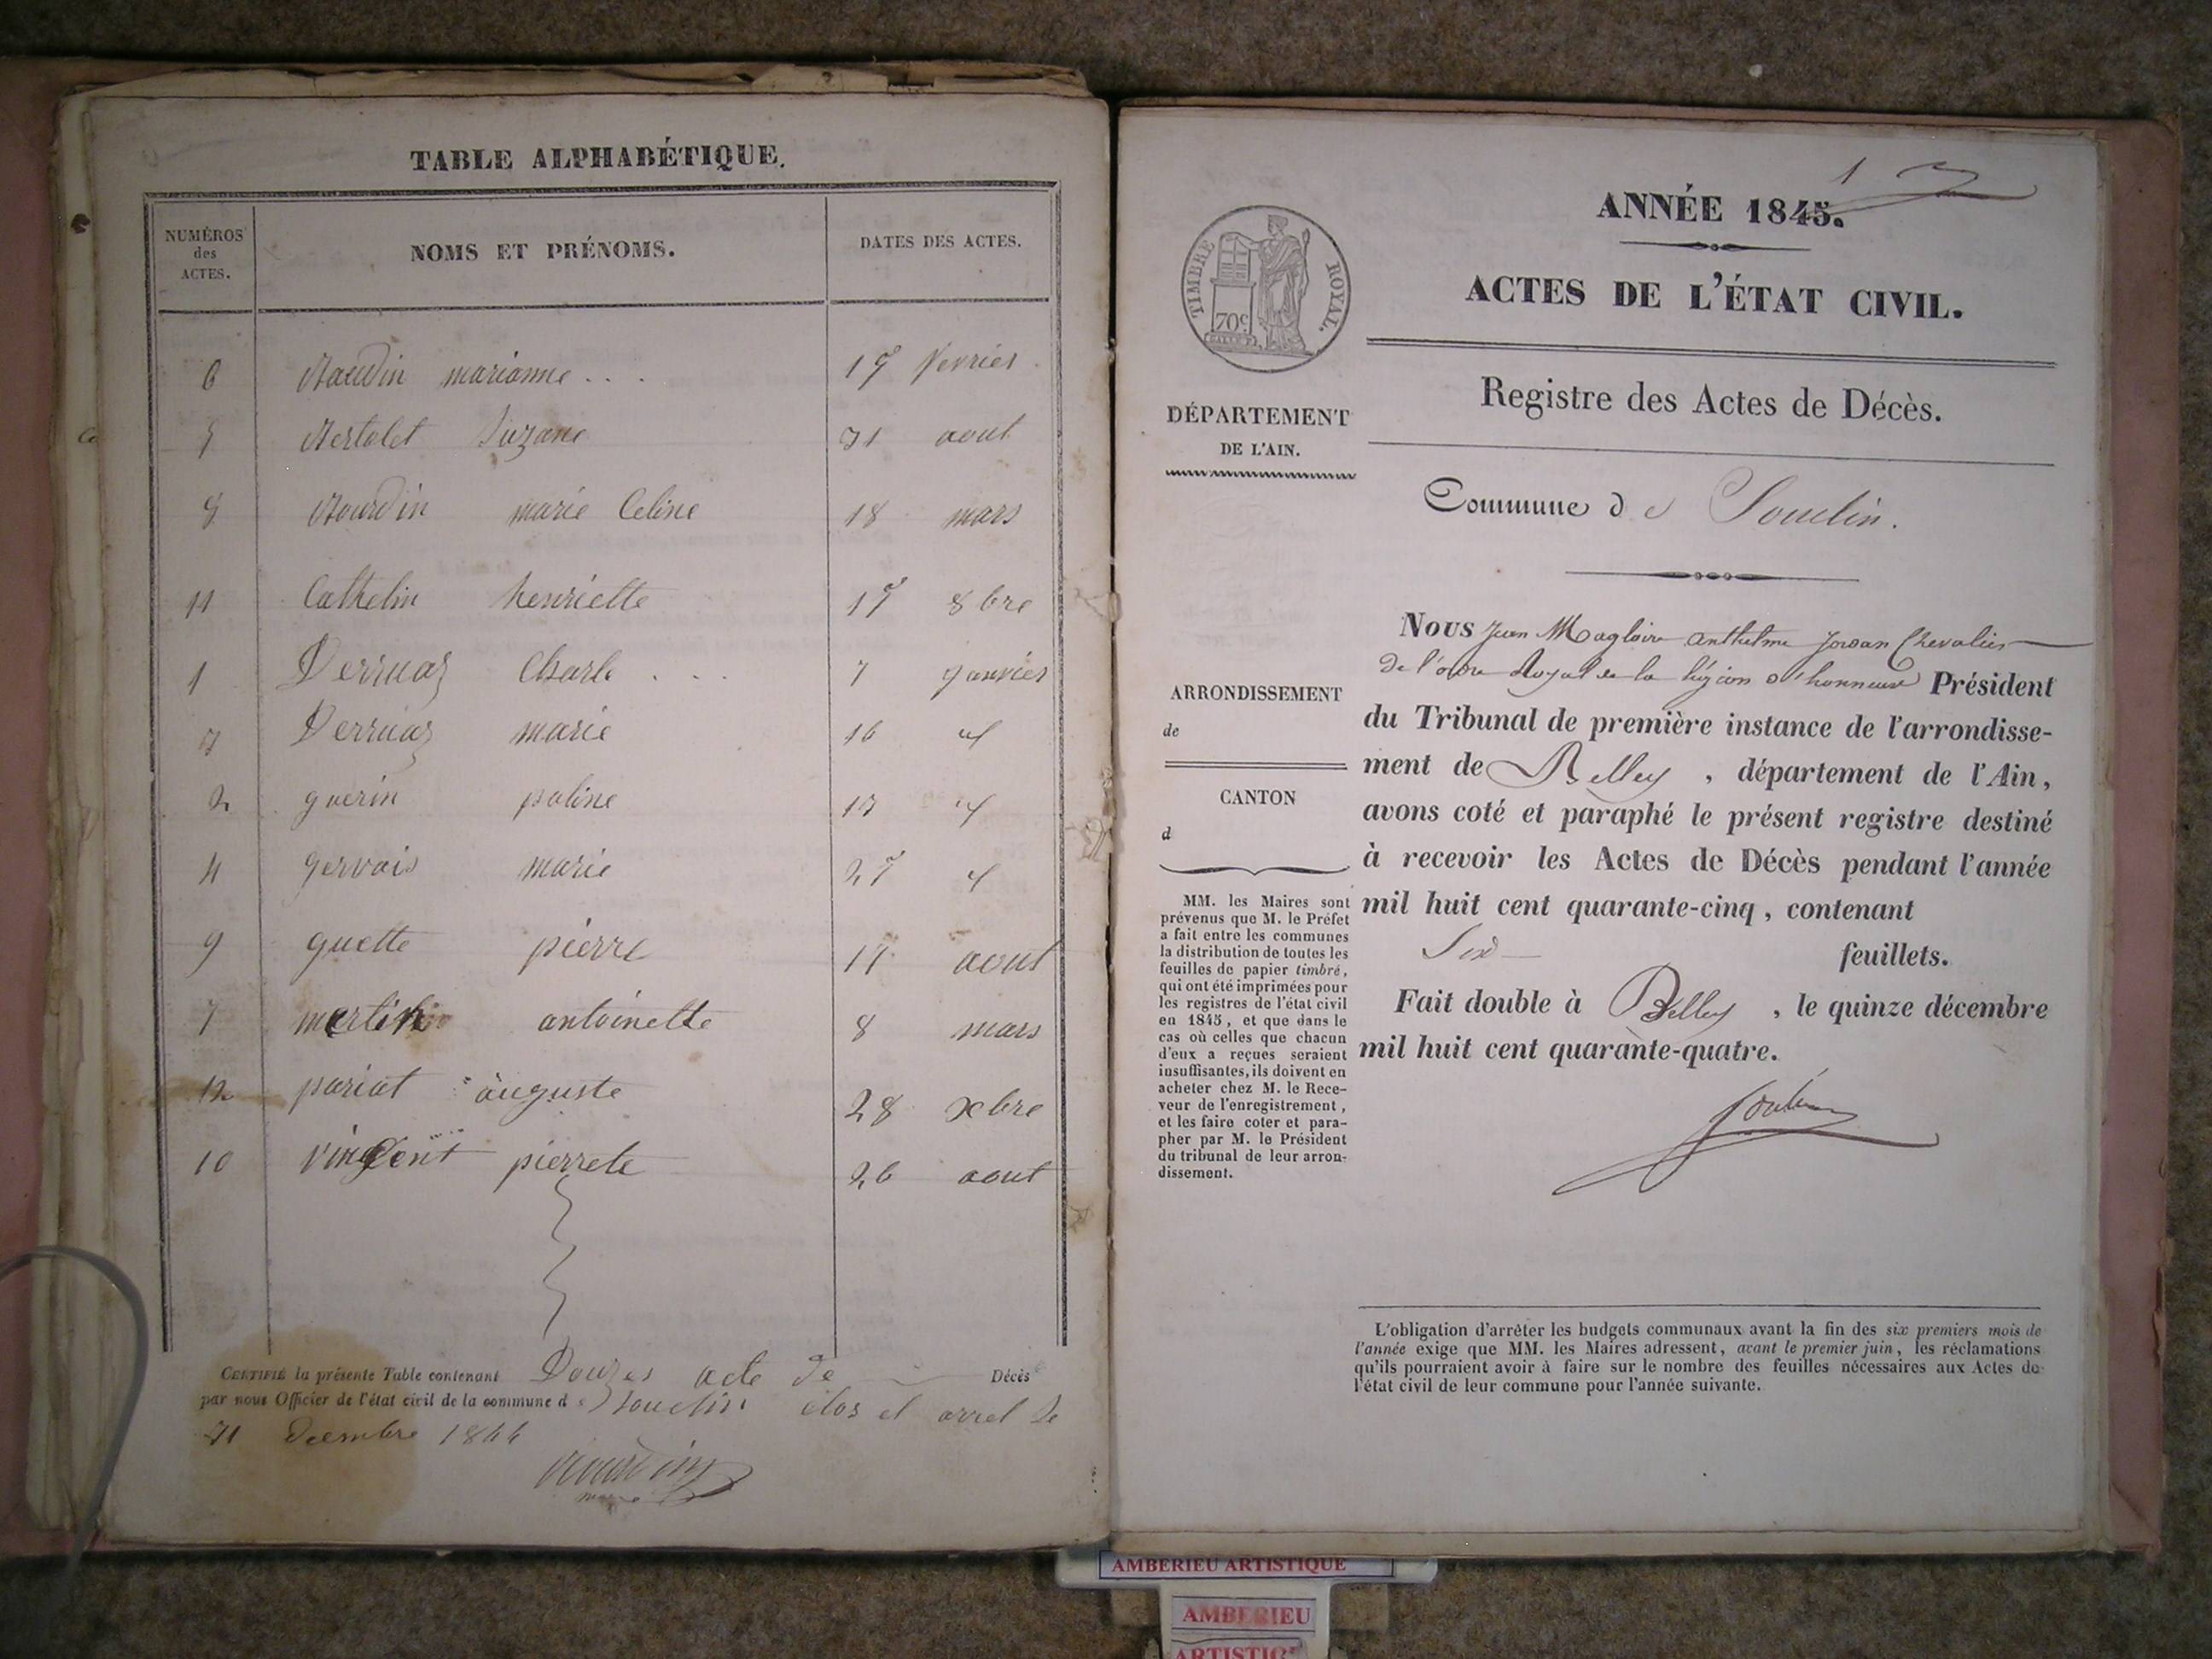 TABLE ALPHABÉTIQUE.
NUMÉROS des ACTES.
NOMS ET PRÉNOMS.
DATES DES ACTES.
6 Baudin marianne . . . 19 fevrier
5 Bertolet Suzane 31 aout
8 Bourdin marie Celine 18 mars
11 Cathelin henriette 15 8bre
1 Derruaz Charle . . . 7 janvier
3 Derruaz marie 16 4
2 guerin poline 13 4
4 gervais marie 25 4
9 guette pierre 11 aout
7 martin antoinette 8 mars
12 pariat auguste 28 xbre
10 vincent pierrete 26 aout
CERTIFIÉ la présente Table contenant Douzes acte de Décès
par nous Officier de l'état civil de la commune de Souclin clos et arret le
31 Decembre 1844
Bourdin
maire
1
ANNÉE 1845.
ACTES DE L'ÉTAT CIVIL.
TIMBRE ROYAL.
70c
Registre des Actes de Décès.
DÉPARTEMENT
DE L'AIN.
Commune de Souclin.
ARRONDISSEMENT
de
CANTON
d
MM. les Maires sont
prévenus que M. le Préfet
a fait entre les communes
la distribution de toutes les
feuilles de papier timbré,
qui ont été imprimées pour
les registres de l'état civil
en 1845, et que dans le
cas où celles que chacun
d'eux a reçues seraient
insuffisantes, ils doivent en
acheter chez M. le Rece-
veur de l'enregistrement,
et les faire coter et para-
pher par M. le Président
du tribunal de leur arron-
dissement.
Nous Jean Magloire anthelme Jordan Chevalier
de l'ordre Royal de la légion d'honneur Président
du Tribunal de première instance de l'arrondisse-
ment de Belley, département de l'Ain,
avons coté et paraphé le présent registre destiné
à recevoir les Actes de Décès pendant l'année
mil huit cent quarante-cinq, contenant
Six feuillets.
Fait double à Belley, le quinze décembre
mil huit cent quarante-quatre.
L'obligation d'arrêter les budgets communaux avant la fin des six premiers mois de
l'année exige que MM. les Maires adressent, avant le premier juin, les réclamations
qu'ils pourraient avoir à faire sur le nombre des feuilles nécessaires aux Actes de
l'état civil de leur commune pour l'année suivante.
AMBERIEU ARTISTIQUE
AMBERIEU
ARTISTIQUE